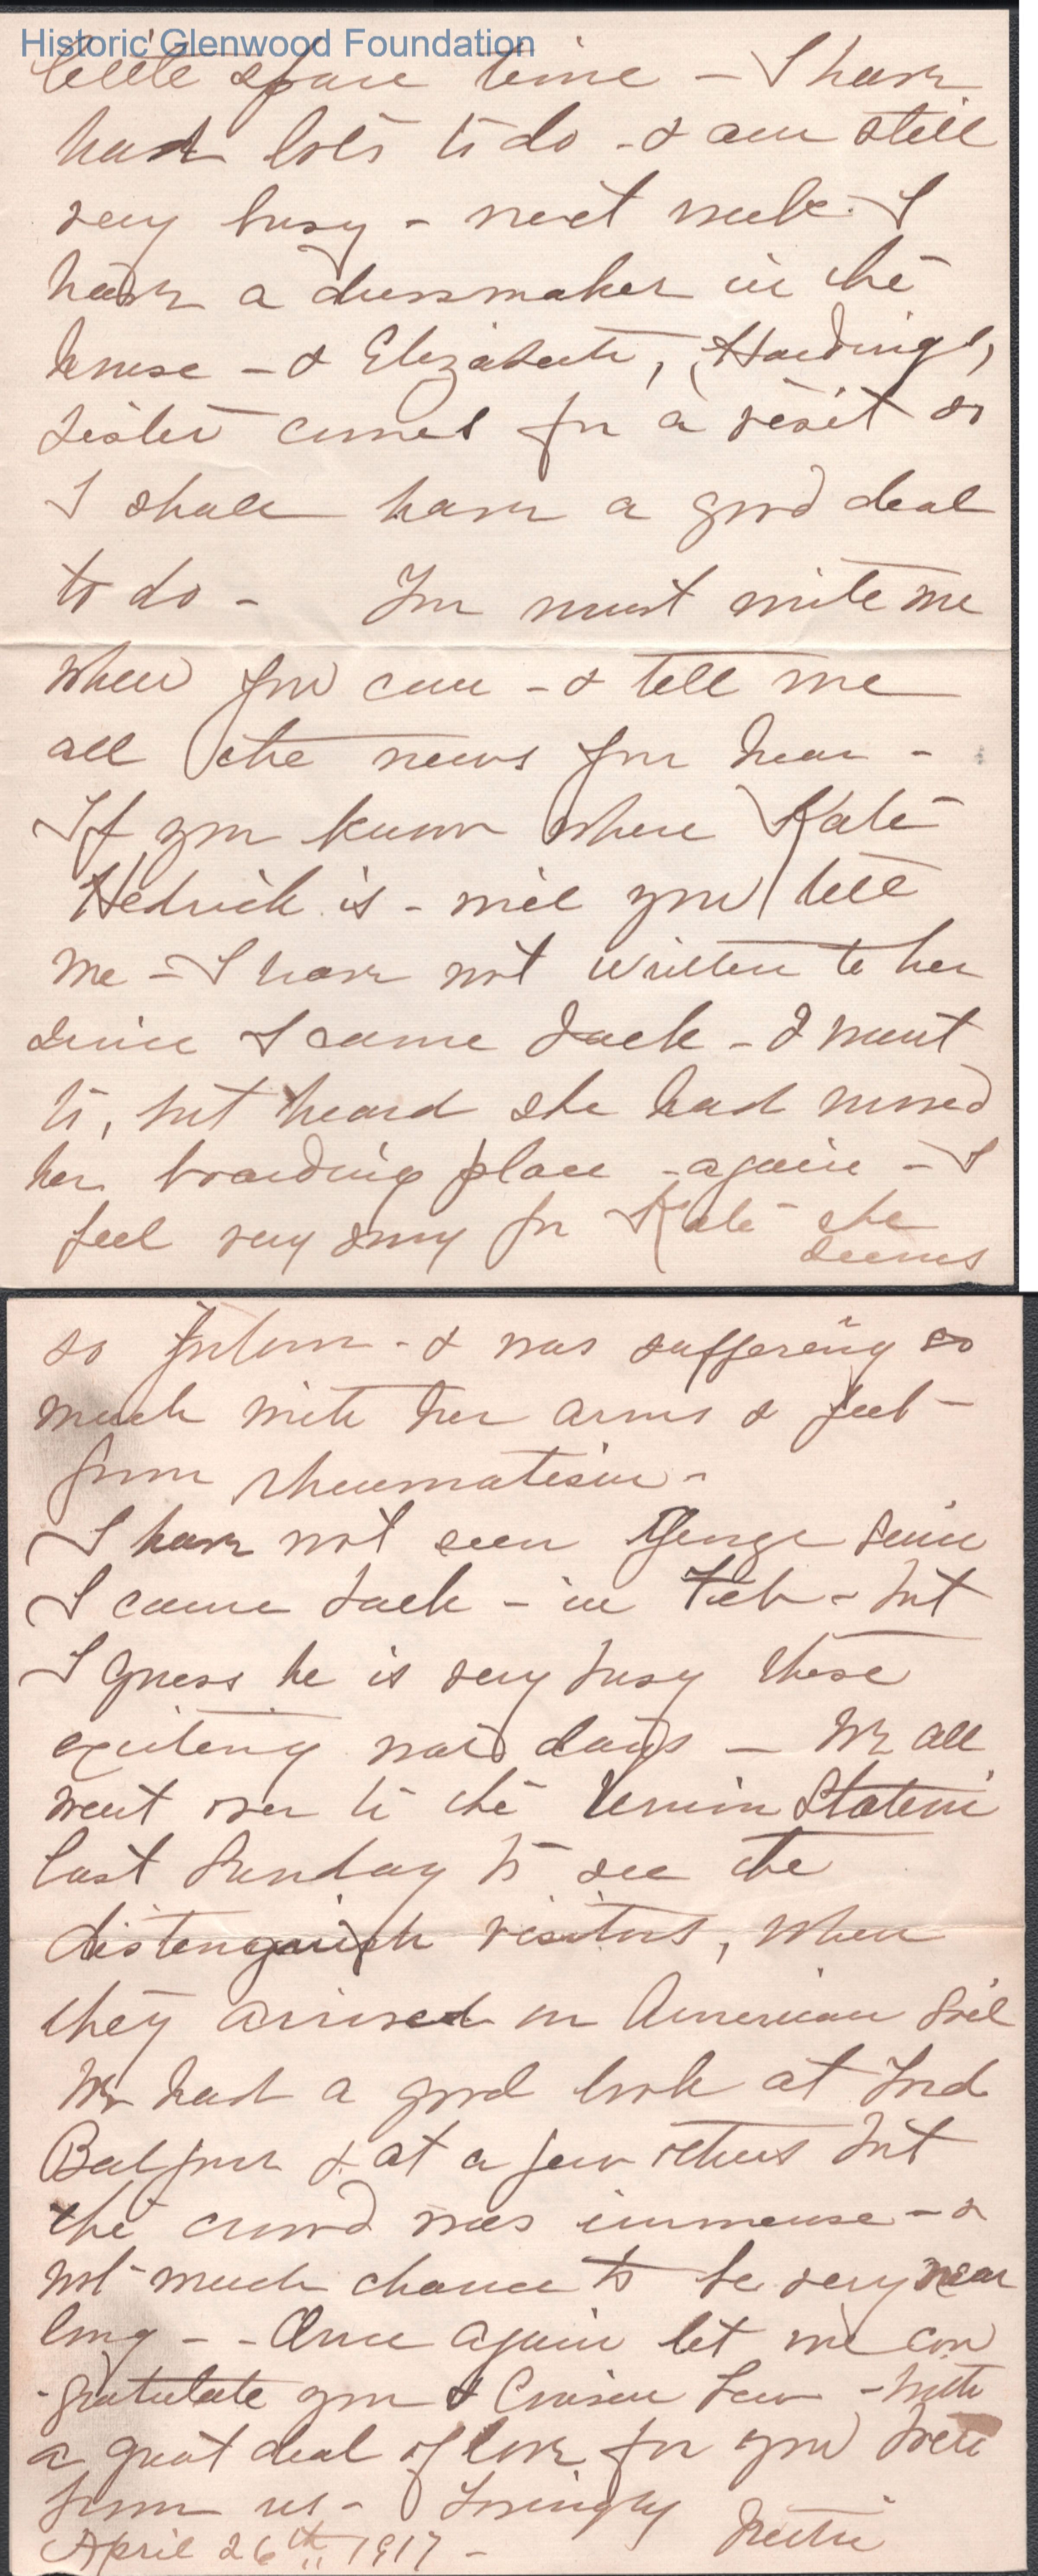 Historic Glenwood Foundation
little spare time - I have
had lots to do - & am still
very busy - next week I
have a dressmaker in the
house - & Elizabeth, Hardings,
sister comes for a visit so
I shall have a good deal
to do - You must write me
when you can - & tell me
all the news you hear -
If you know where Kate
Hedrick is - will you tell
me - I have not written to her
since I came back - I meant
to, but heard she had moved
her boarding place - again - I
feel very sorry for Kate - she
seems
so forlorn - & was suffering so
much with her arms & feet -
from rheumatism -
I have not seen George since
I came back - in Feb - but
I guess he is very busy these
exciting war days - We all
went over to the Union Station
last Sunday to see the
distinguish visitors, when
they arrived on American soil
We had a good look at Lord
Balfour & at a few others but
the crowd was immense - &
not much chance to be very near
long - - Once again let me con
-gratulate you & Cousin Lew - with
a great deal of love for you both
from us - Lovingly Nettie
April 26th 1917 -